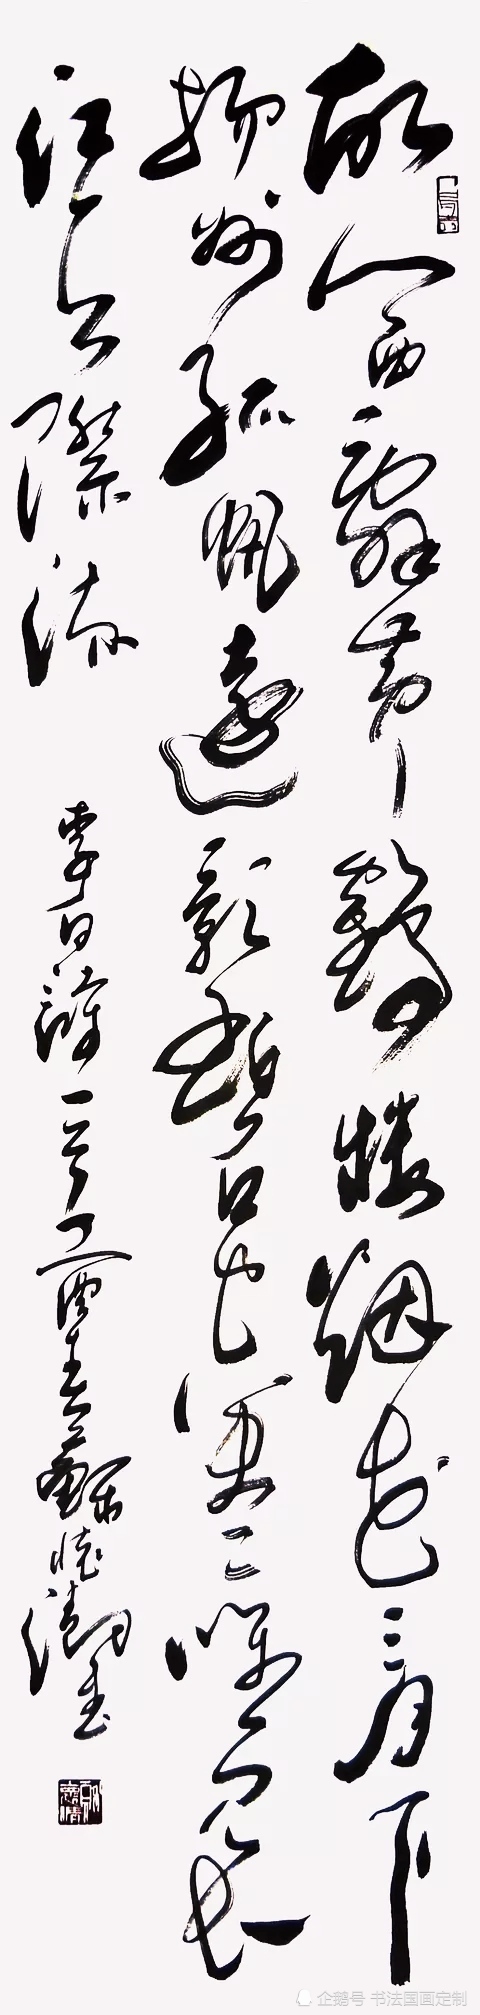 故人西辞黄鹤楼烟花三月下
扬州孤帆远影碧空尽唯见长
江天际流
李白诗一首
企鹅号 书法国画定制